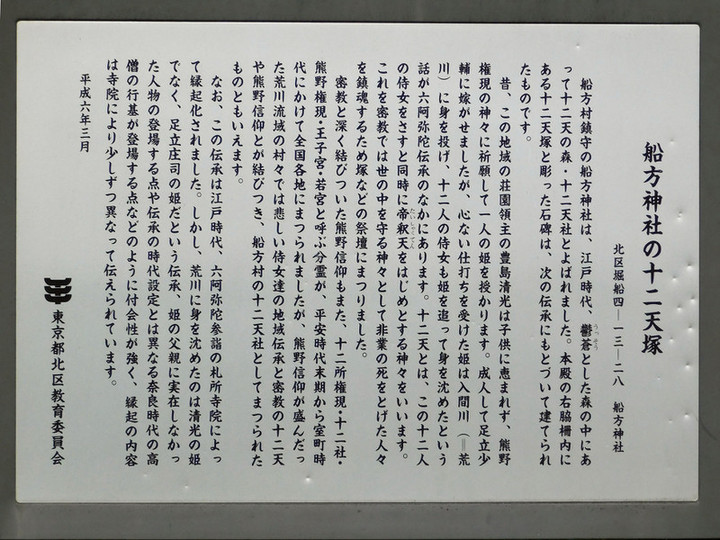 船方神社の十二天塚
北区堀船四―一三―二八　船方神社
船方村鎮守の船方神社は、江戸時代、鬱蒼とした森の中にあ
うっそう
って十二天の森・十二天社とよばれました。本殿の右脇柵内に
ある十二天塚と彫った石碑は、次の伝承にもとづいて建てられ
たものです。
昔、この地域の荘園領主の豊島清光は子供に恵まれず、熊野
権現の神々に祈願して一人の姫を授かります。成人して足立少
輔に嫁がせましたが、心ない仕打ちを受けた姫は入間川（＝荒
川）に身を投げ、十二人の侍女も姫を追って身を沈めたという
話が六阿弥陀伝承のなかにあります。十二天とは、この十二人
の侍女をさすと同時に帝釈天をはじめとする神々をいいます。
たいしゃくてん
これを密教では世の中を守る神々として非業の死をとげた人々
を鎮魂するため塚などの祭壇にまつりました。
密教と深く結びついた熊野信仰もまた、十二所権現・十二社・
熊野権現・王子宮・若宮と呼ぶ分霊が、平安時代末期から室町時
代にかけて全国各地にまつられましたが、熊野信仰が盛んだっ
た荒川流域の村々では悲しい侍女達の地域伝承と密教の十二天
や熊野信仰とが結びつき、船方村の十二天社としてまつられた
ものともいえます。
なお、この伝承は江戸時代、六阿弥陀参詣の札所寺院によっ
て縁起化されました。しかし、荒川に身を沈めたのは清光の姫
でなく、足立庄司の姫だという伝承、姫の父親に実在しなかっ
た人物の登場する点や伝承の時代設定とは異なる奈良時代の高
僧の行基が登場する点などのように付会性が強く、縁起の内容
は寺院により少しずつ異なって伝えられています。
平成六年三月
東京都北区教育委員会